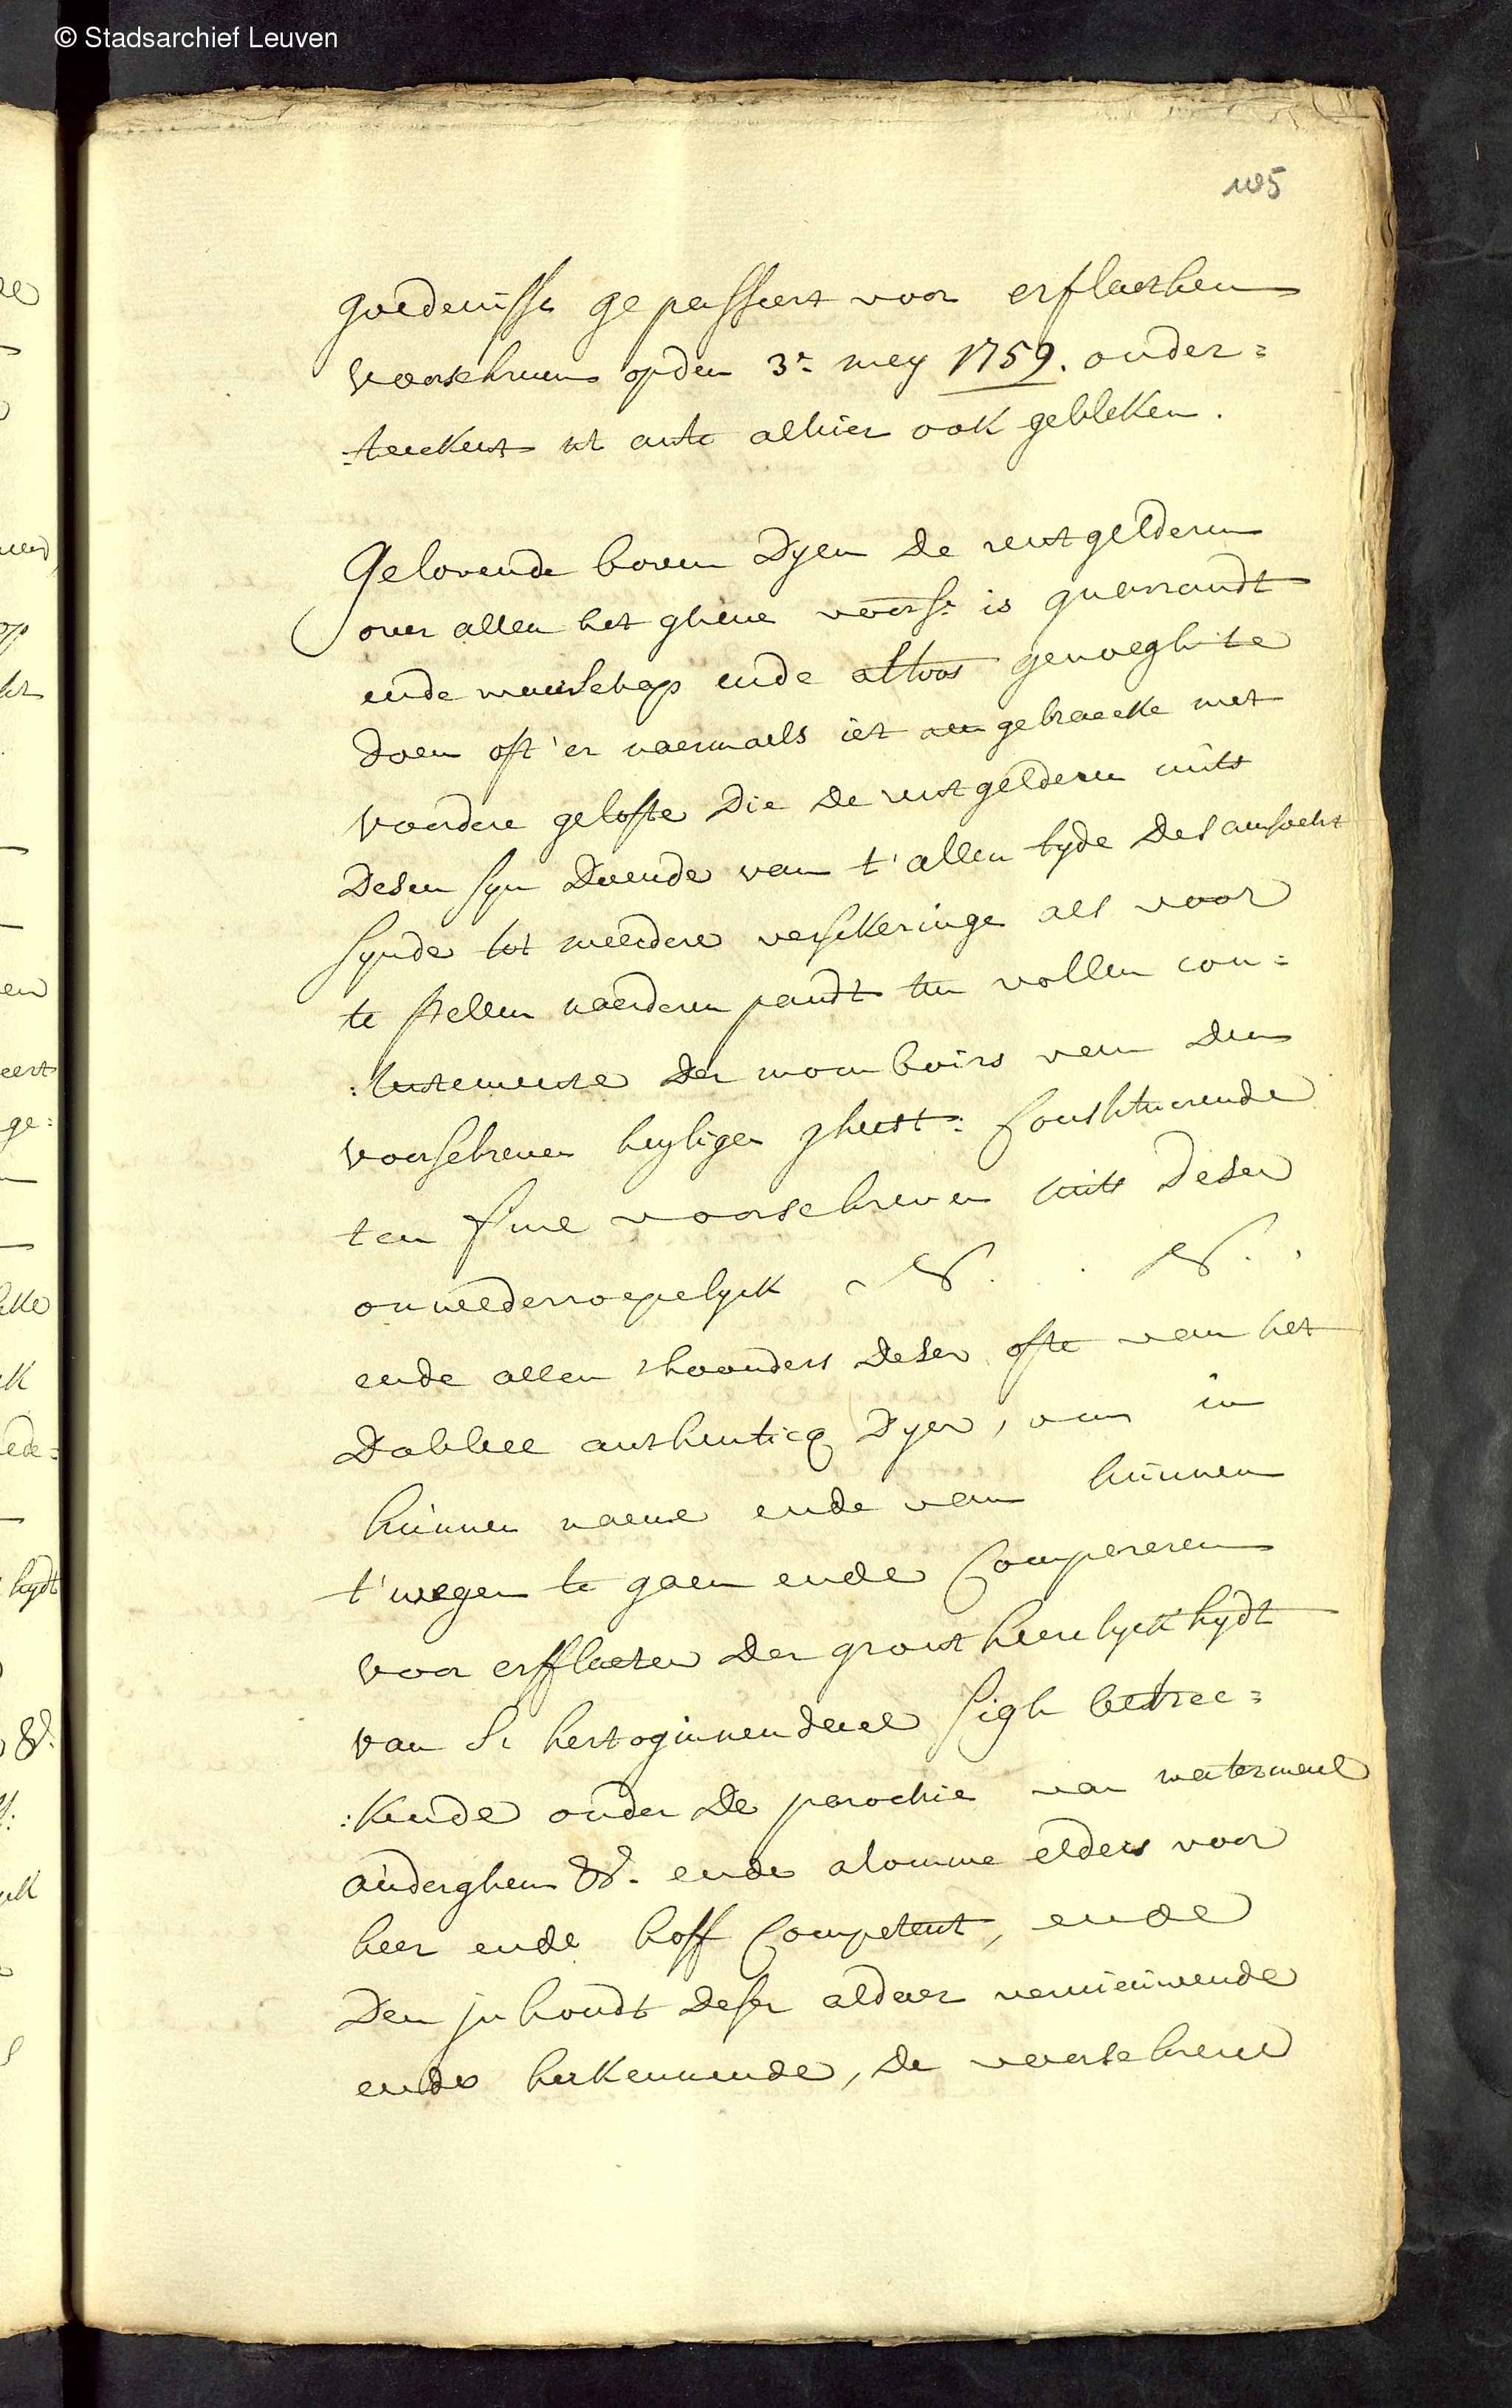 © Stadsarchief Leuven
105
goedenisse gepasseert voor erflaethen
voorschreven op den 3e. mey 1759. onder=
:teeckent ut ante alhier ook gebleken.
Gelovende boven dyen de rentgelderen
over allen het ghene voors: is guarrandt
ende waerschap ende altoos genoegh te
doen oft'er naermaels iet aen gebraecke met
voordere gelofte die de rentgelderen mits
desen syn doende van t'allen tyde des aensocht
synde tot meerdere versekeringe als voor
te stellen naerderen pandt ten vollen con=
:tentemente der momboirs van den
voorschreven heyligen gheest: Constituerende
ten fine voorschreven mits desen
onwederroepelyck &. . &. .
ende allen thoonders deser ofte van het
dobbel authenticq dyer, om in
hunnen naeme ende van hunnen
t'wegen te gaen ende Compareren
voor erfflaeten der groot heerelyckhydt
van S: hertoginnendael sigh betrec=
:kende onder de parochie van watermael
auderghem &. ende alomme elders voor
heer ende hoff Competent, ende
den inhoudt deser aldaer vernieuwende
ende herkennende, de voorschreve